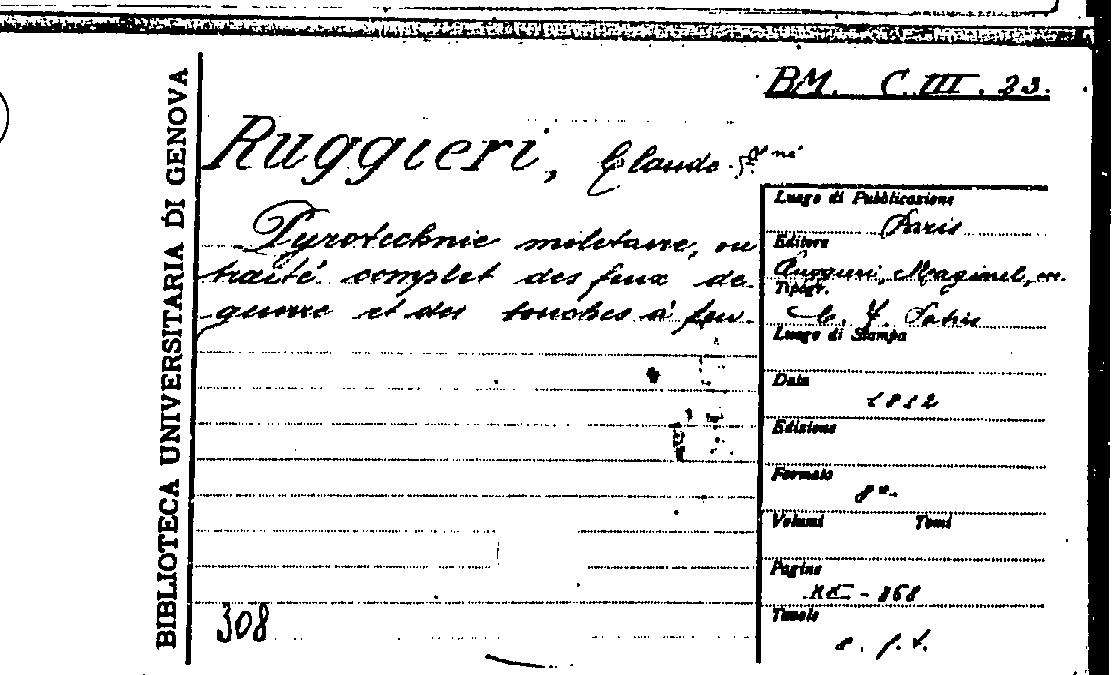 BIBLIOTECA UNIVERSITARIA DI GENOVA
BM. C.III.23.
Ruggieri, Claude
Pyrotechnie militaire, ou
traité complet des feux de
guerre et des bouches à feu.
308
Luogo di Pubblicazione
Paris
Editore
Ruggieri, Magimel, ecc.
Tipogr.
Luogo di Stampa
Data
1812
Edizione
Formato
8°.
Volumi Tomi
Pagine
Tavole
8. f.t.